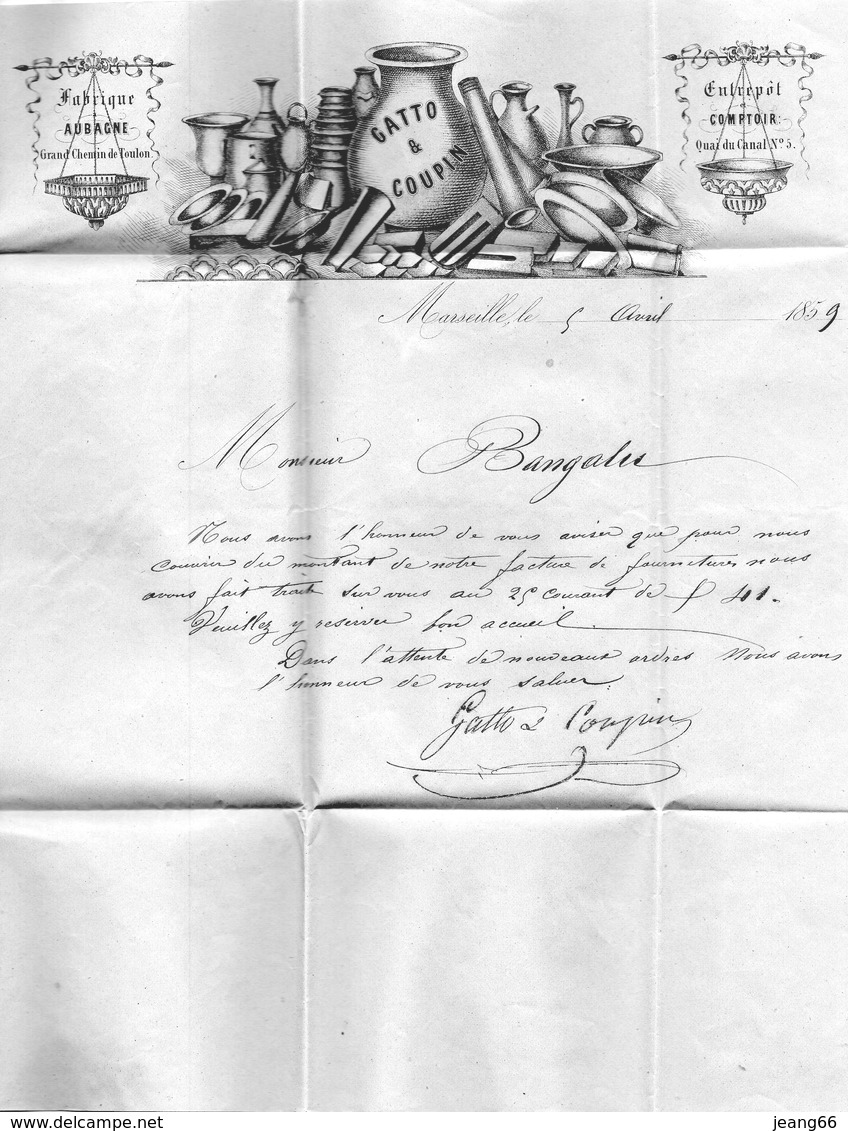 Fabrique
à
AUBAGNE
Grand Chemin de Toulon.
GATTO
&
COUPIN
Entrepôt
et
COMPTOIR:
Quai du Canal Nº 5.
Marseille, le 5 Avril 1859
Monsieur Bangales
Nous avons l'honneur de vous aviser que pour nous
couvrir du montant de notre facture de fournitures nous
avons fait traite sur vous au 25 courant de f 41.
Veuillez y reserver bon accueil.
Dans l'attente de nouveaux ordres Nous avons
l'honneur de vous saluer.
Gatto & Coupin
www.delcampe.net
jeang66